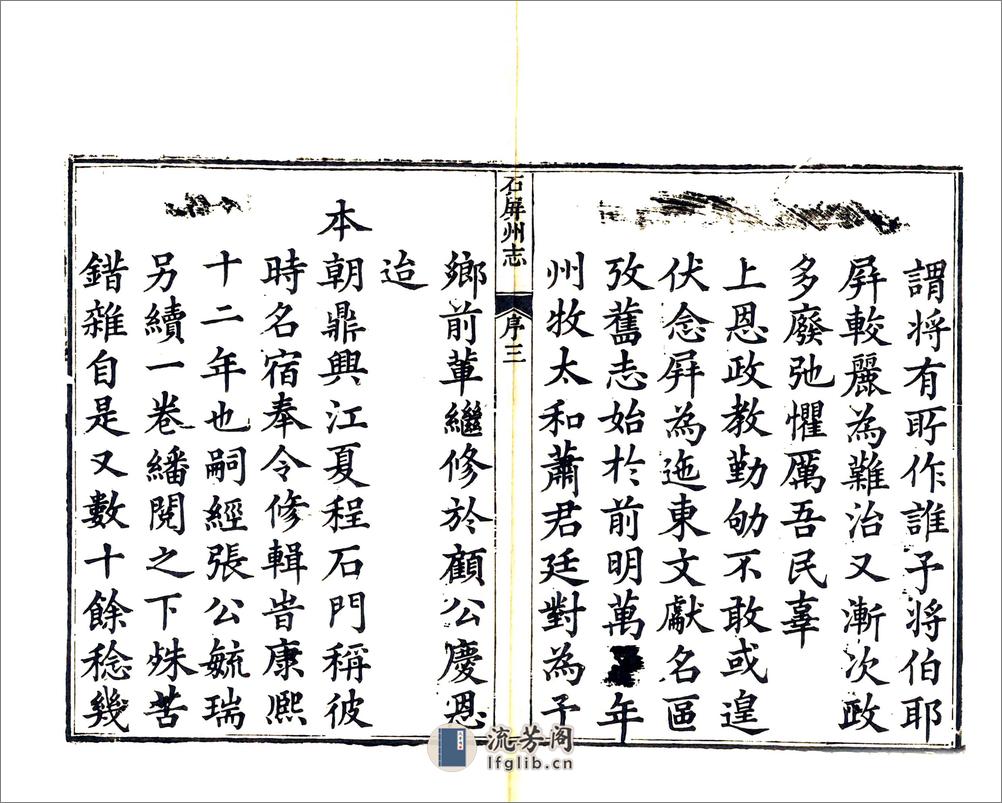 謂将有所作誰予将伯耶
屏較麗為難治又漸次政
多廢弛懼厲吾民辜
上恩政教勤劬不敢或遑
伏念屏為迤東文獻名區
攷舊志始於前明萬年
州牧太和蕭君廷對為予
石屏州志
序三
鄉前軰繼修於顧公慶恩
迨
本朝鼎興江夏程石門稱彼
時名宿奉令修輯旹康熈
十二年也嗣經張公毓瑞
另續一卷繙閱之下殊苦
錯雜自是又數十餘稔幾
流芳阁
lfglib.cn